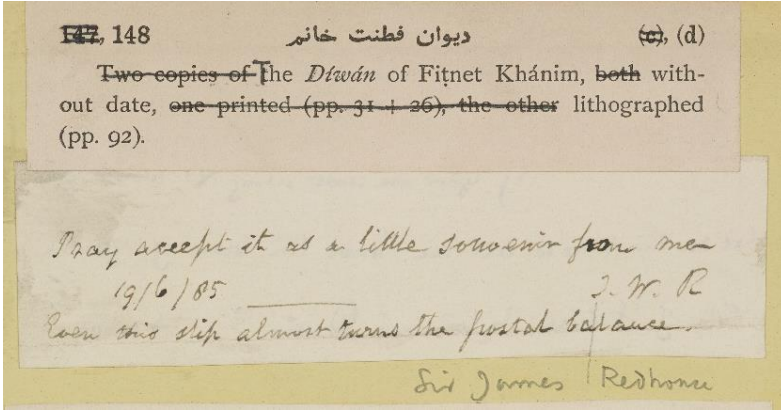 147, 148 ديوان فطنت خانم (c), (d)
Two copies of The Díwán of Fiṭnet Khánim, both with-
out date, one printed (pp. 31 + 26), the other lithographed
(pp. 92).
Pray accept it as a little souvenir from me
19/6/85 J. W. R
Even this slip almost turns the postal balance.
Sir James Redhouse